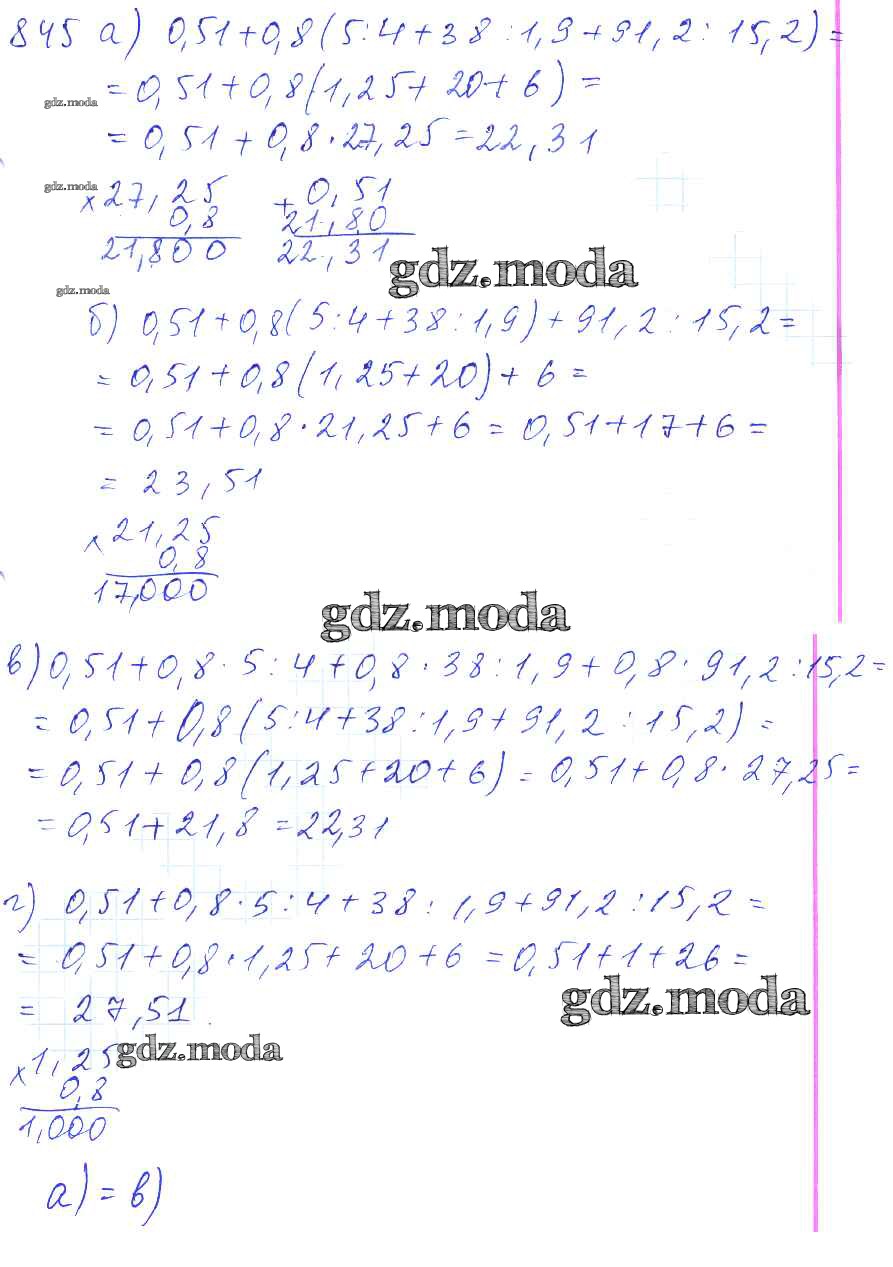 845 а) 0,51+0,8(5:4+38:1,9+91,2:15,2)=
=0,51+0,8(1,25+20+6)=
gdz.moda
=0,51+0,8·27,25=22,31
gdz.moda
×27,25 +0,51
0,8 21,80
21,800 22,31
gdz.moda
gdz.moda
б) 0,51+0,8(5:4+38:1,9)+91,2:15,2=
=0,51+0,8(1,25+20)+6=
=0,51+0,8·21,25+6=0,51+17+6=
=23,51
×21,25
0,8
17,000
gdz.moda
в) 0,51+0,8·5:4+0,8·38:1,9+0,8·91,2:15,2=
=0,51+0,8(5:4+38:1,9+91,2:15,2)=
=0,51+0,8(1,25+20+6)=0,51+0,8·27,25=
=0,51+21,8=22,31
г) 0,51+0,8·5:4+38:1,9+91,2:15,2=
=0,51+0,8·1,25+20+6=0,51+1+26=
gdz.moda
=27,51
gdz.moda
×1,25
0,8
1,000
а)=в)